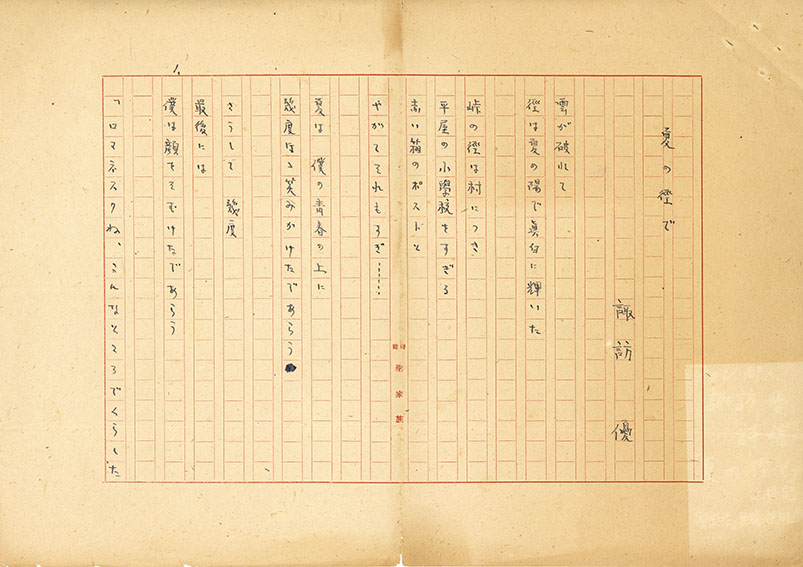 夏の徑で
諏訪 優
雲が破れて
徑は夏の陽で眞白に輝いた
峠の徑は村につき
平屋の小學校をすぎる
赤い箱のポストと
やがてそれもすぎ……
夏は 僕の青春の上に
幾度ほゝ笑みかけたであらう
さうして 幾度
最後には
僕は顔をそむけたであらう
「ロマネスクね、こんなところでくらした
聖家族
1